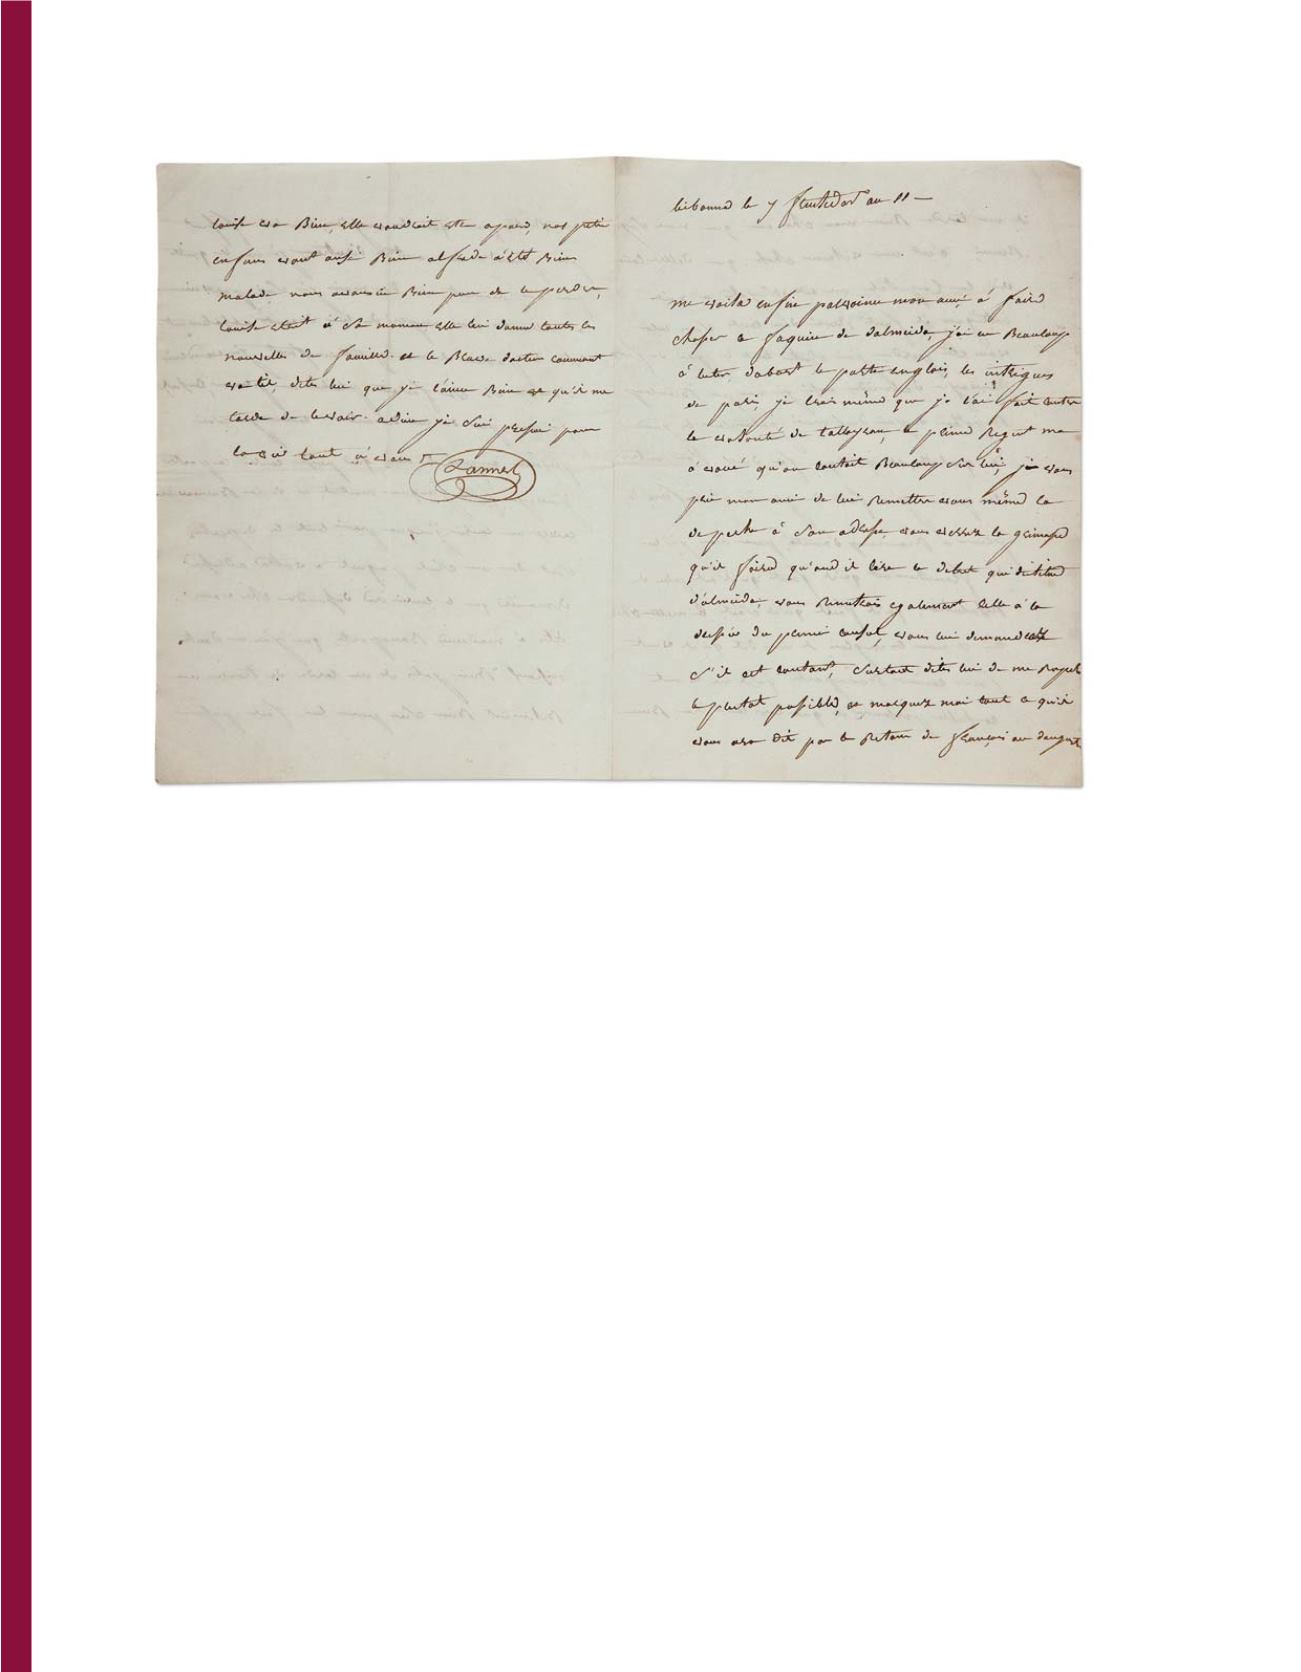 lisbonne le 7 fructidor an 11 –
me voila enfin parvainu mon ami à faire
chaser ce faquin de dalmeida, j'ai eu Beaucoup
à luter dabort le partie anglois, les intrigues
de paris, je crois même que je l'ai fait contre
la volonté de talleyran, le prince Regent ma
à voué qu'on contoit Beaucoup sur lui, je vous
prie mon ami de lui Remettre vous même la
depeche à son adresse, vous verrez la grimasse
qu'il faira quand il lira le decret qui destitue
d'almeida, vous Remetrais egalement celle à la
du premier consul, vous lui demanderez
s'il est contant, surtout dites lui de me Rapeler
le plutot possible, et marquez moi tout ce qu'il
vous ora dit par le Retour de françois ou daugust
louise va Bien, elle voudroit etre a paris, nos petis
enfans vont aussi Bien alfrede à été Bien
malade nous avons eu Bien peur de le perdre,
louise ecrit à sa maman elle lui donne toutes les
nouvelles de famille. et le Brave docteur comment
va til, dites lui que je l'aime Bien et qu'il me
tarde de le voir. adieu je sui pour
la vie tout à vous
Lannes